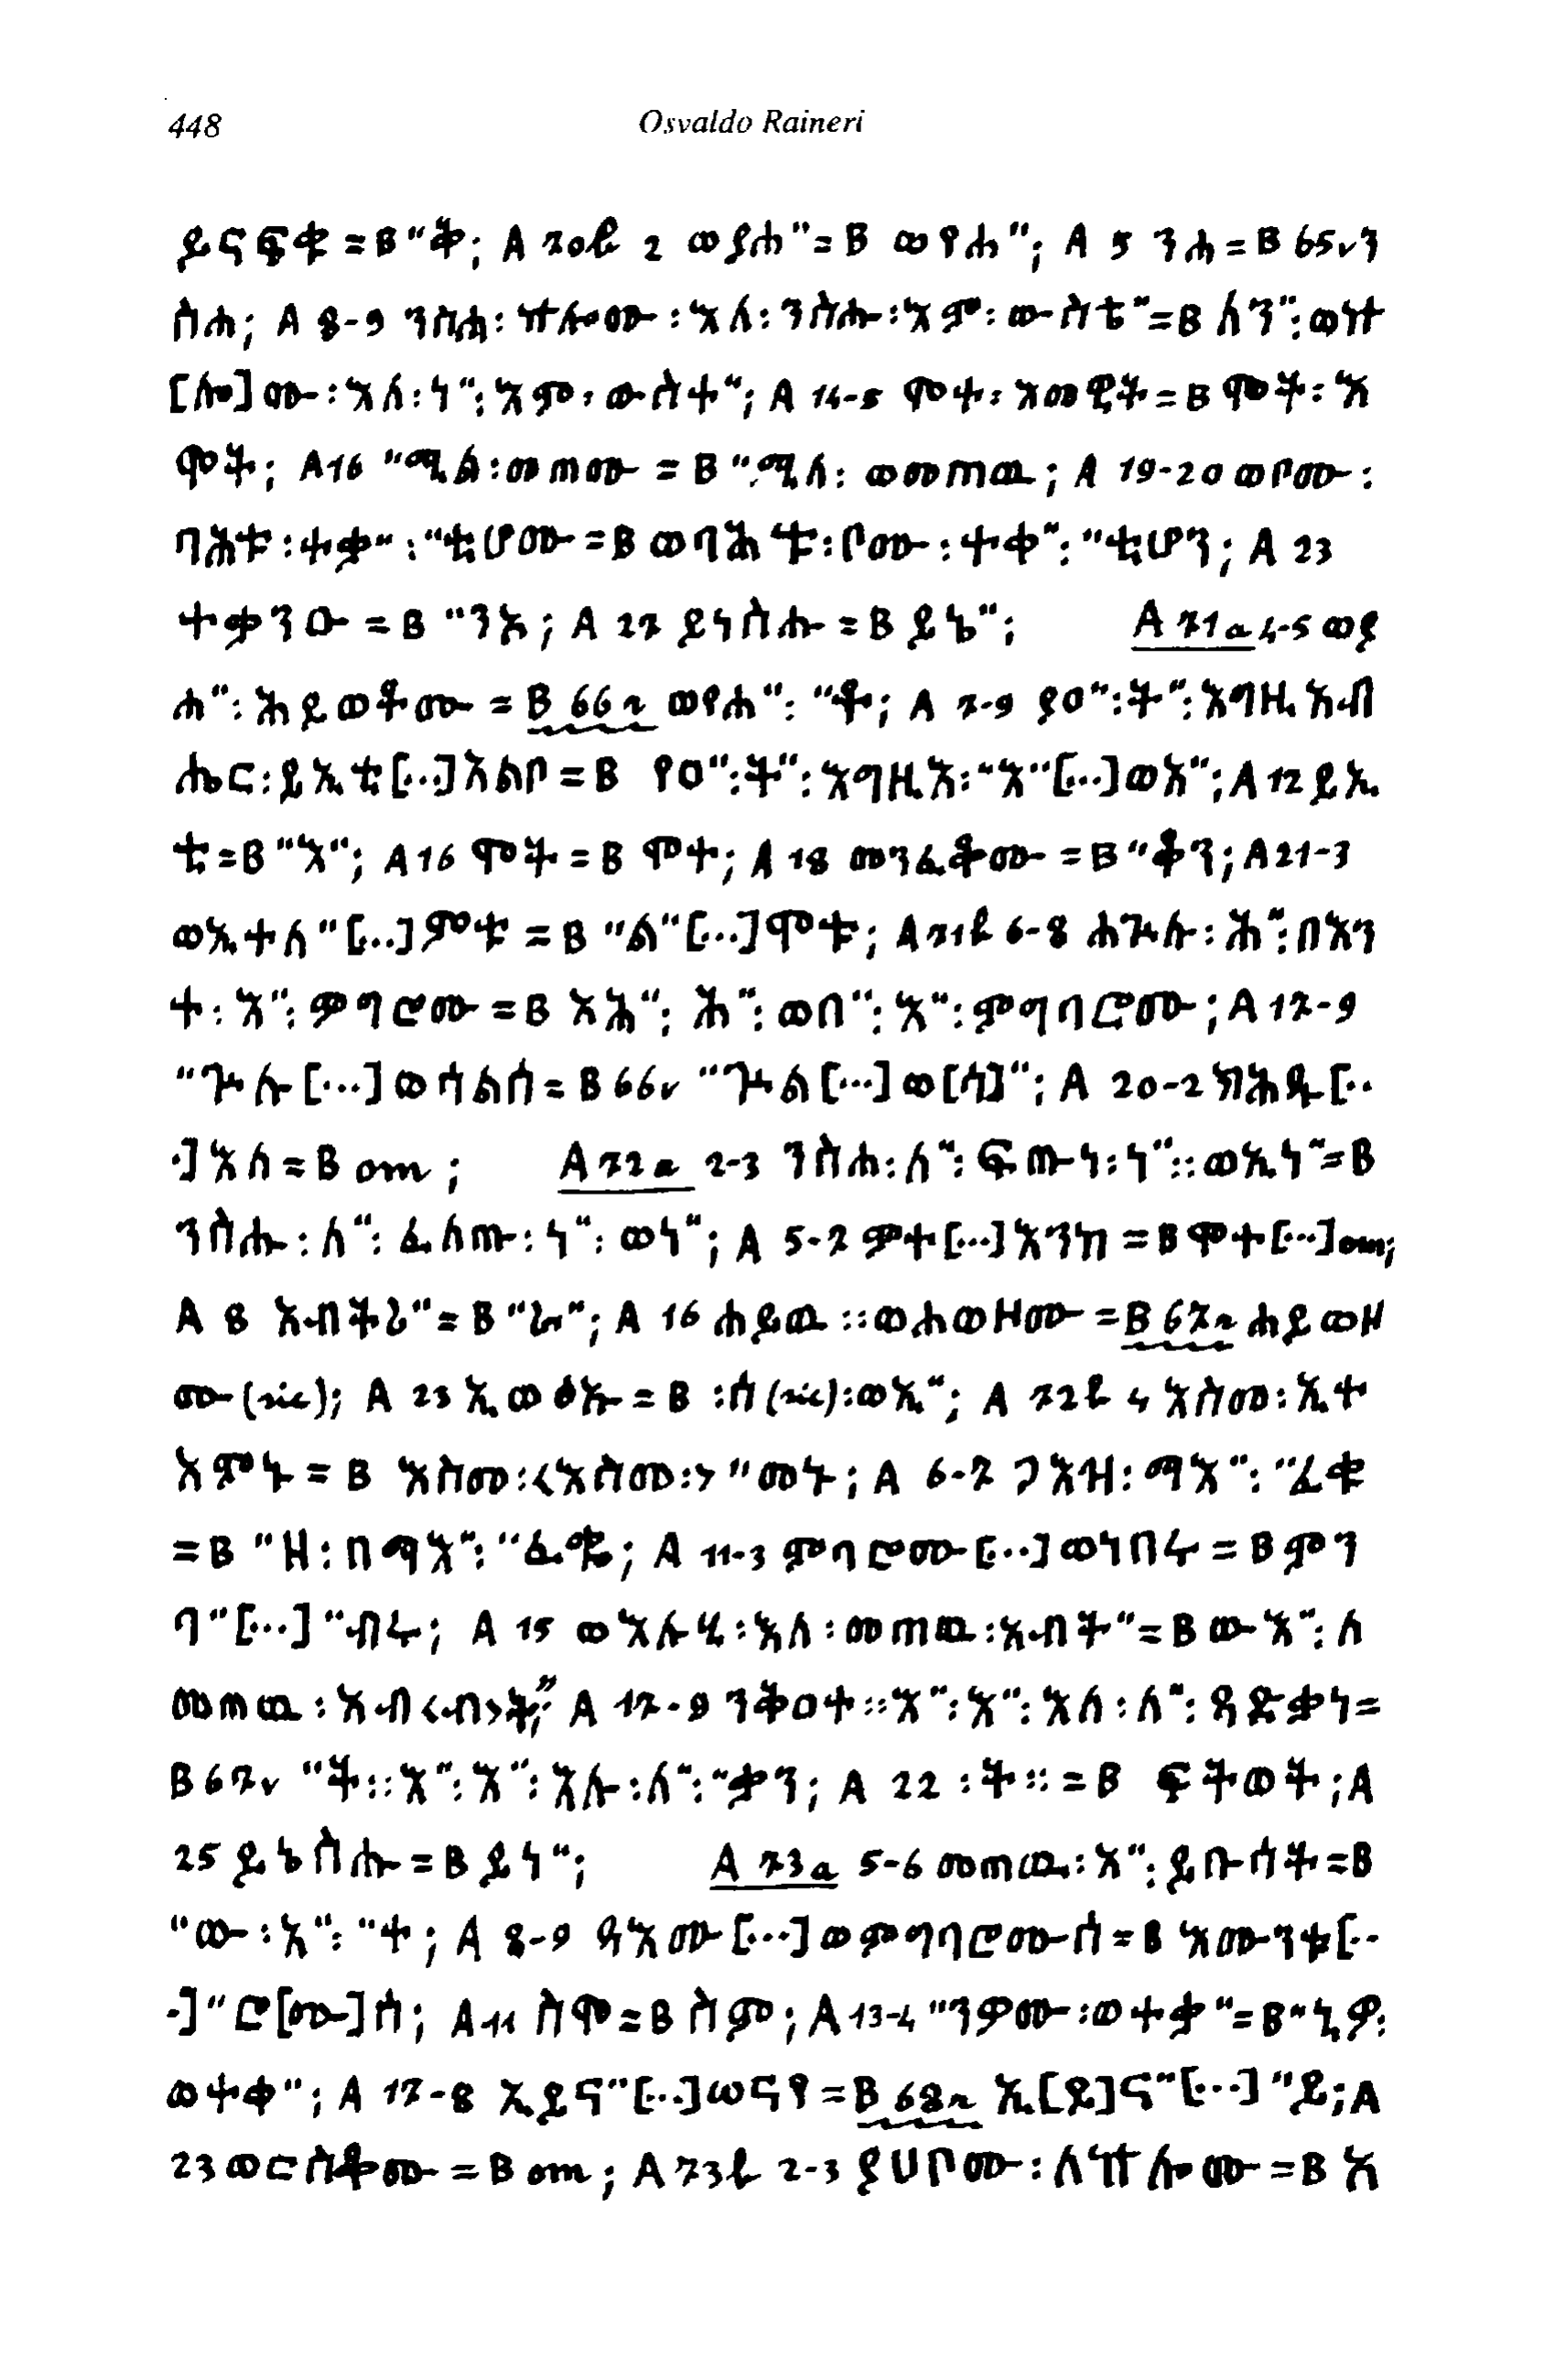 448 Osvaldo Raineri
ይናፍቁ = B "ቅ; A 70b 2 ወያሐ" = B ወየሐ"; A 5 ንሐ = B 65v ን
ስሐ; A 8-9 ንስሐ: ኵሎሙ: እለ: ንስሑ: እም: ውስቴ" = B ለን": ወኵ
[ሎ]ሙ: እለ: ነ": እም: ውስተ"; A 14-5 ሞተ: እመዊት = B ሞት: እ
ሞት; A 16 "ሚል: መጠሙ = B "ሚለ: ወመጠወ; A 19-20 ወቦሙ:
ባሕቱ: ተቃ": "ቲሆሙ = B ወባሕቱ: ቦሙ: ተቀ": "ቲሆን; A 23
ተቃንዑ = B "ንእ; A 27 ይነስሑ = B ይኔ"; A 71a 4-5 ወያ
ሐ": ሕይወቶሙ = B 66r ወየሐ": "ቶ; A 7-9 ያዐ": ት": እግዚአብ
ሔር: ይእቲ [...] እልቦ = B የዐ": ት": እግዚእ: "እ" [...] ወአ"; A 12 ይእ
ቲ = B "እ"; A 16 ሞት = B ሞተ; A 18 መንፈቆሙ = B "ቆን; A 21-3
ወኢተለ" [...] ምቱ = B "ል" [...] ሞቱ; A 71b 6-8 ሐጕሉ: ሕ": በእን
ተ: እ": ምግሮሙ = B እሕ": ሕ": ወበ": እ": ምግባሮሙ; A 17-9
"ጕሉ [...] ወሣልሰ = B 66v "ጕል [...] ወ[ሣ]"; A 20-2 ክሕዱ [..
.] እለ = B om; A 72a 2-3 ንስሐ: ለ": ፍጡነ: ነ":: ወኢነ" = B
ንስሑ: ለ": ፈለጡ: ነ": ወነ"; A 5-7 ምተ [...] እንከ = B ሞተ [...] om;
A 8 አብትሪ" = B "ራ"; A 16 ሐይወ :: ወሐወዞሙ = B 67r ሐይወዞ
ሙ (sic); A 23 ኢወፅኡ = B :ሰ (sic): ወኢ"; A 72b 4 እስመ: ኢተ
አምኑ = B እስመ: <እስመ:> "መኑ; A 6-7 ጋእዝ: ማእ": "ፈቁ
= B "ዘ: በማእ": "ፈቄ; A 11-3 ምባሮሙ [...] ወነበሩ = B ምን
ባ" [...] "ብሩ; A 15 ወእሉሂ: እለ: መጠወ: አብት" = B ውእ": ለ
መጠወ: አብ<ብ>ት"; A 17-9 ንቅዐተ:: እ": እ": እለ: ለ": ጻድቃነ =
B 67v "ት:: እ": እ": እሉ: ለ": "ቃን; A 22 :ት:: = B ፍትወት; A
25 ይኔስሑ = B ይነ"; A 73a 5-6 መጠወ: እ": ይቡሰት = B
"ው: አ": "ተ; A 8-9 ዓእሙ [...] ወምግባሮሙሰ = B እሙንቱ [..
.] "ሮ[ሙ]ሰ; A 11 ስሞ = B ስም; A 13-4 "ንዎሙ: ወተቃ" = B "ኒዎ:
ወተቀ"; A 17-8 ኢይና" [...] ወናየ = B 68r ኢ[ይ]ና" [...] "ይ; A
23 ወርስቶሙ = B om; A 73b 2-3 ያሀቦሙ: ለኵሎሙ = B እ